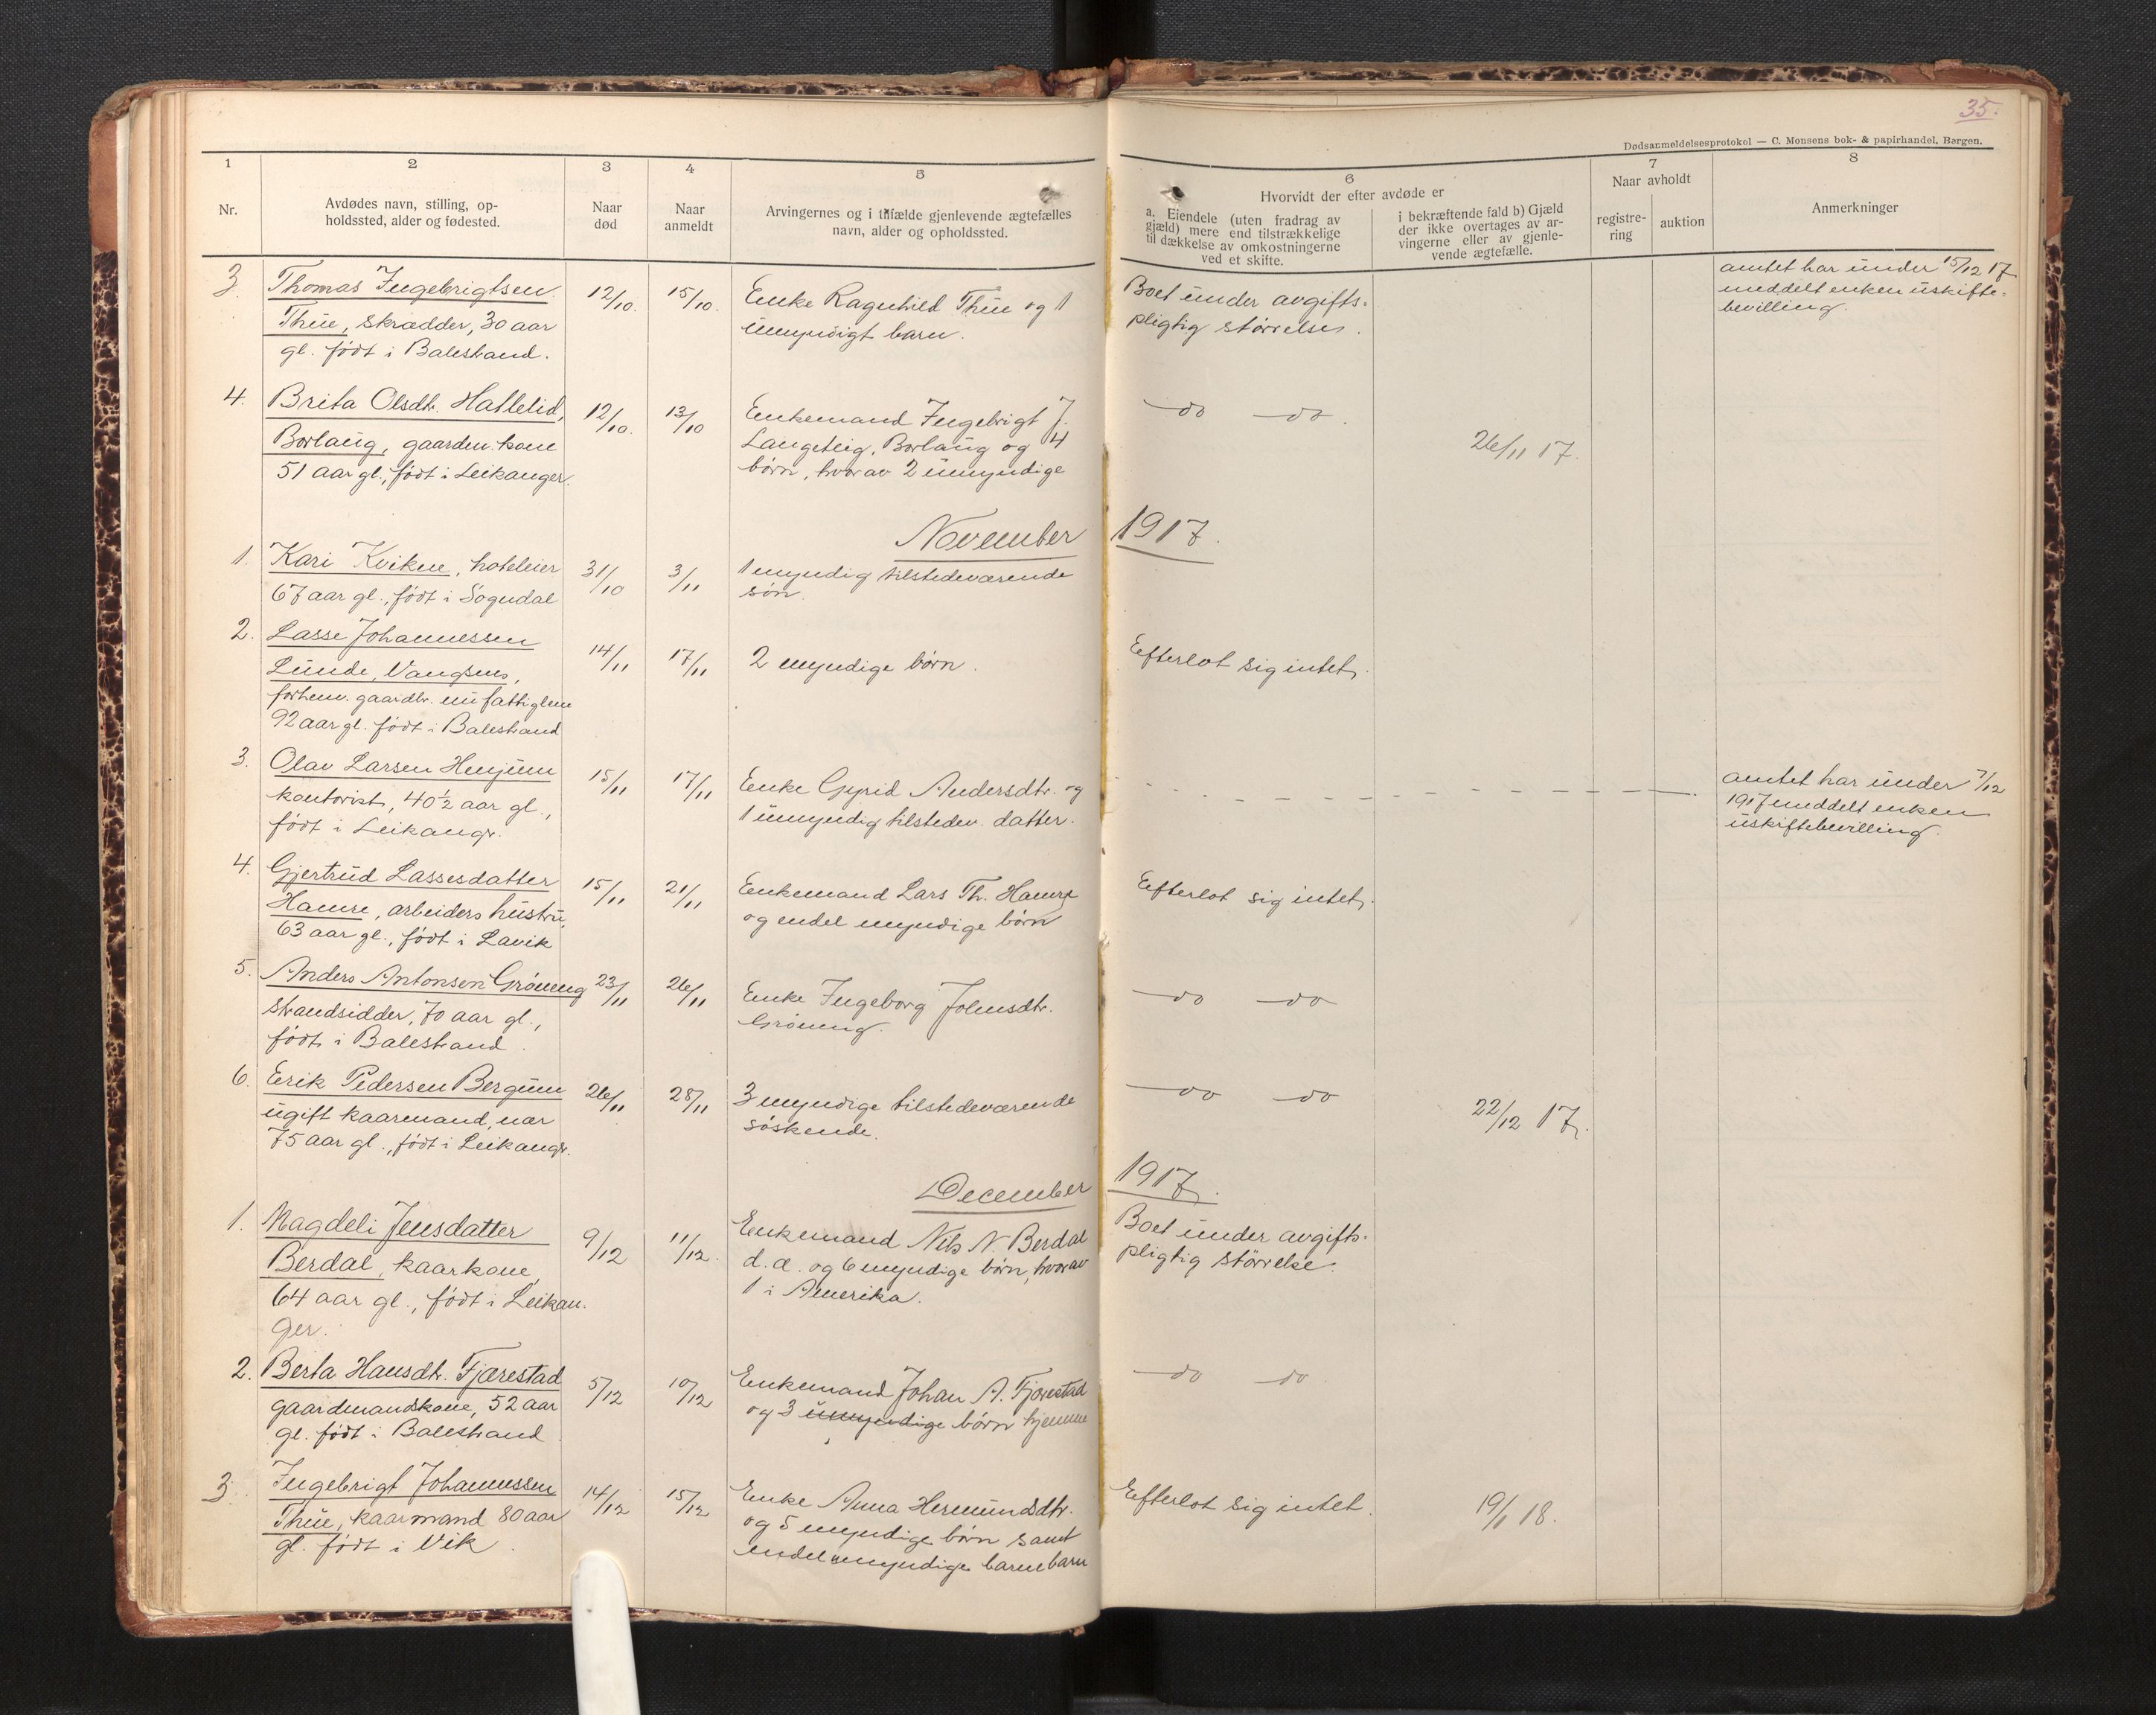 35.
Dødsanmeldelsesprotokol — C. Monsens bok- & papirhandel, Bergen.
1
2
3
4
5
6
7
8
Nr.
Avdødes navn, stilling, op-
holdssted, alder og fødested.
Naar
død
Naar
anmeldt
Arvingernes og i tilfælde gjenlevende ægtefælles
navn, alder og opholdssted.
Hvorvidt der efter avdøde er
a. Eiendele (uten fradrag av
gjæld) mere end tilstrækkelige
til dækkelse av omkostningerne
ved et skifte.
i bekræftende fald b) Gjæld
der ikke overtages av ar-
vingerne eller av gjenle-
vende ægtefælle.
Naar avholdt
registre-
ring
auktion
Anmerkninger
3
Thomas Ingebrigtsen
Thue, skrædder, 30 aar
gl. født i Balestrand.
12/10.
15/10.
Enke Ragnhild Thue og 1
umyndigt barn.
Boet under avgifts-
pligtig størrelse.
amtet har under 15/12 17
meddelt enken uskifte-
bevilling.
4.
Brita Olsdtr. Hatlelid,
Borlaug, gaardm. kone
51 aar gl., født i Leikanger.
12/10.
13/10
Enkemand Ingebrigt J.
Langeteig, Borlaug og 4
børn, hvorav 2 umyndige
— do — do —.
26/11 17.
November 1917.
1.
Kari Kvikne, hoteleier
67 aar gl., født i Sogndal
31/10
3/11
1 myndig tilstedeværende
søn.
2.
Lasse Johannessen
Lunde, Vangsnes,
forhenv. gaardbr. nu fattiglem
92 aar gl. født i Balestrand
14/11
17/11
2 myndige børn.
Efterlot sig intet.
3.
Olav Larsen Henjum
kontorist, 40½ aar gl.,
født i Leikangr.
15/11
17/11
Enke Gyrid Andersdtr. og
1 umyndig tilstedev. datter.
amtet har under 7/12
1917 meddelt enken
uskiftebevilling.
4.
Gjertrud Lassesdatter
Hamre, arbeiders hustru,
63 aar gl., født i Lavik
15/11
21/11
Enkemand Lars Th. Hamre
og endel myndige børn
Efterlot sig intet.
5.
Anders Antonsen Grøning
strandsidder, 70 aar gl.,
født i Balestrand.
23/11
26/11
Enke Ingeborg Johnsdtr.
Grøning.
— do — do
6.
Erik Pedersen Bergum
ugift kaarmand, nær
75 aar gl., født i Leikangr.
26/11
28/11
3 myndige tilstedeværende
søskende.
— do — do
22/12 17.
December 1917.
1.
Magdeli Jensdatter
Berdal, kaarkone,
64 aar gl., født i Leikan-
ger.
9/12
11/12.
Enkemand Nils N. Berdal
d. æ. og 6 myndige børn, hvorav
1 i Amerika.
Boet under avgifts-
pligtig størrelse.
2.
Berta Hansdtr. Fjærestad
gaardmandskone, 52 aar
gl. født i Balestrand
5/12
10/12
Enkemand Johan A. Fjærestad
og 3 umyndige børn hjemme
— do — do
3
Ingebrigt Johannessen
Thue, kaarmand 80 aar
gl. født i Vik.
14/12
15/12
Enke Anna Hermundsdtr.
og 5 myndige børn samt
endel umyndige barnebarn
Efterlot sig intet.
19/1 18.